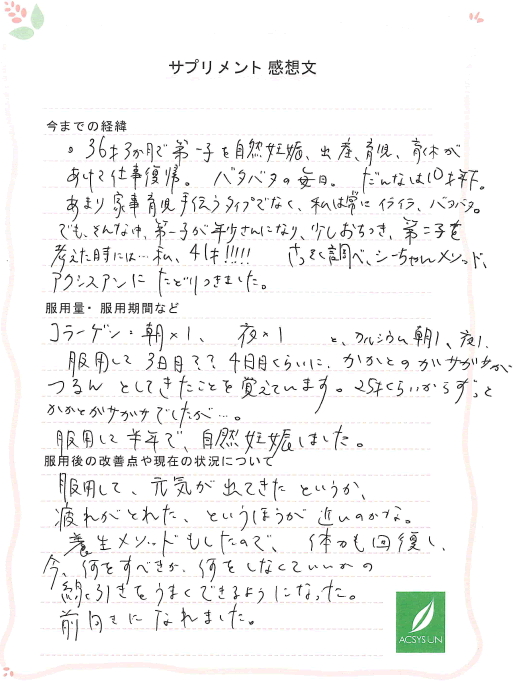 サプリメント 感想文
今までの経緯
。36才3か月で第一子を自然妊娠、出産、育児、育休が
あけて仕事復帰。バタバタの毎日。だんなは10才年下。
あまり家事育児手伝うタイプでなく、私は常にイライラ、バタバタ。
でも、そんな中、第一子が年少さんになり、少しおちつき、第二子を
考えた時には…私、41才!!!!! さっそく調べ、シーちゃんメソッド、
アクシスアンに たどりつきました。
服用量・服用期間など
コラーゲン:朝×1、 夜×1 と、カルシウム朝1、夜1.
服用して 3日目?? 4日目くらいに、かかとのガサガサが
つるん としてきたことを覚えています。25才くらいからずっと
かかとがガサガサでしたが…。
服用して半年で、自然妊娠しました。
服用後の改善点や現在の状況について
服用して、元気が出てきたというか、
疲れがとれた、というほうが近いのかな。
養生メソッドもしたので、体力も回復し、
今、何をすべきか、何をしなくていいかの
線引きをうまくできるようになった。
前向きになれました。
ACSYSUN